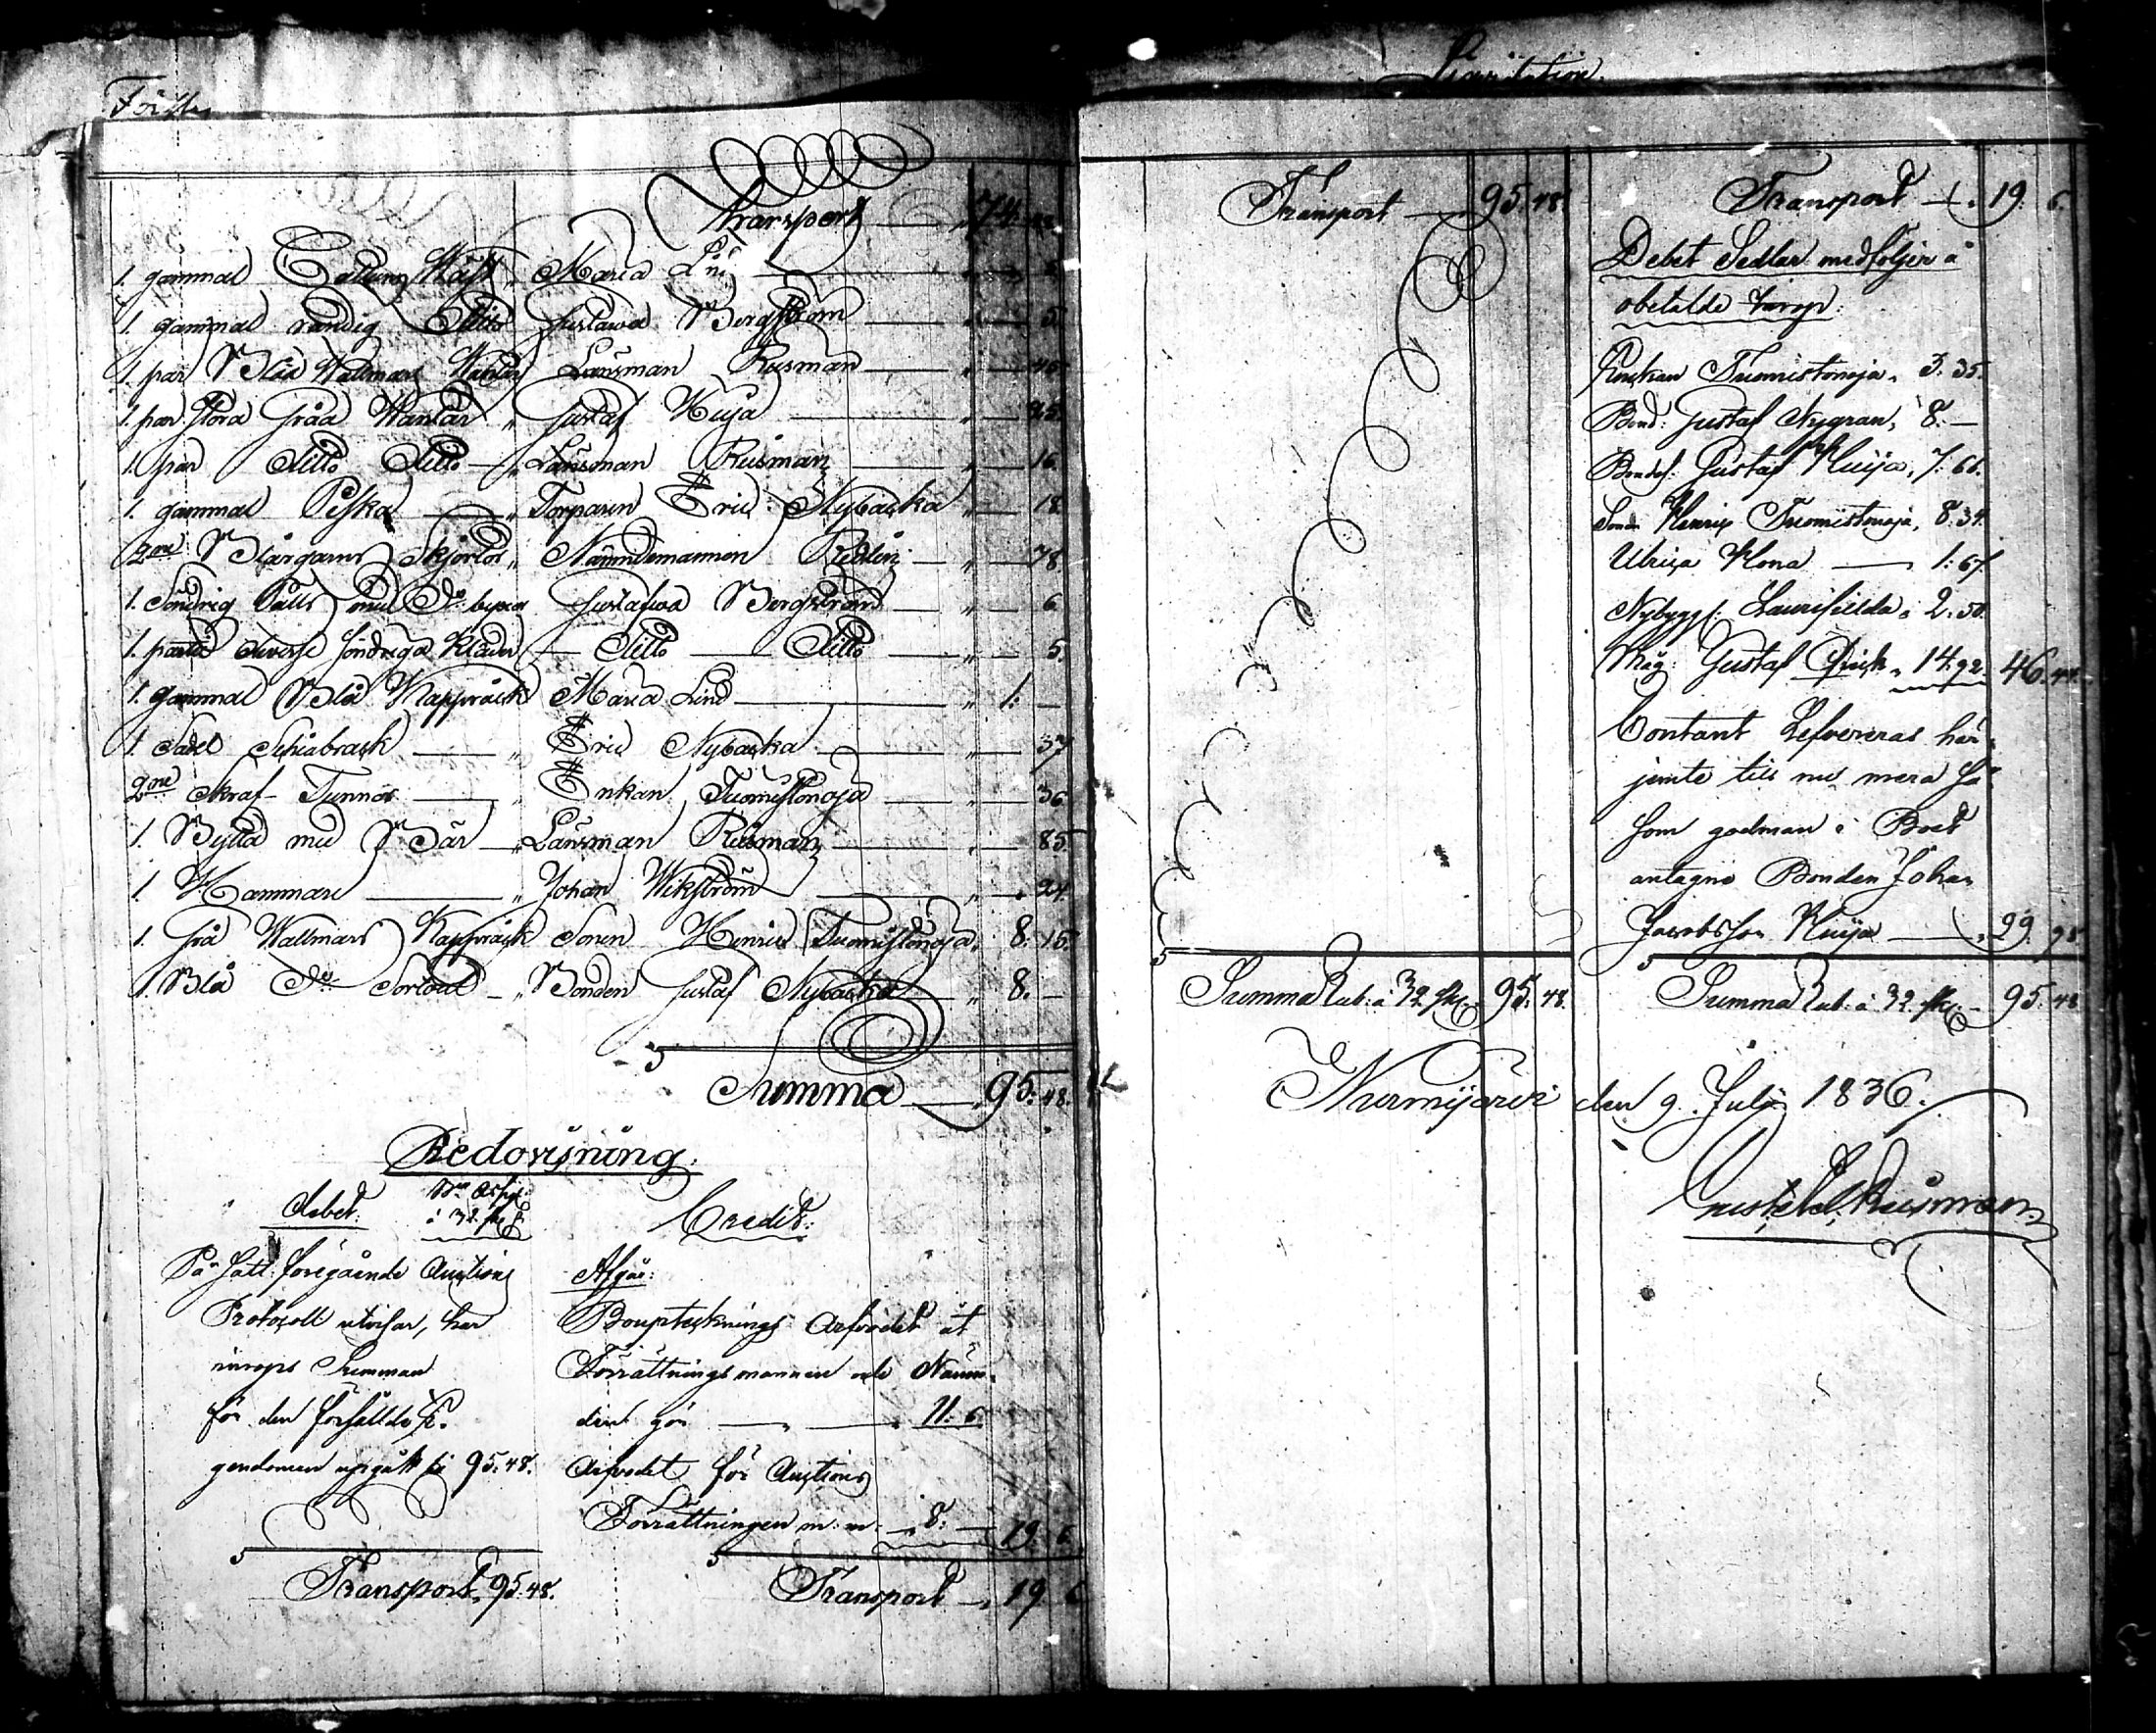 Transport 74.
1. gammal Cattuns Wäst " Maria Lind
1. gammal randig Ditto Gustava Bergström 5.
1. par Blåa Wallmars Wantar Länsman Rusman 45
1. par Stora Gråa Wantar " Gustaf Kuija 25.
1. par Ditto Ditto " Länsman Rusman 16.
1. gammal Peska " Torparen Eric Nybacka 18.
2ne Blårgarns Skjortor " Nämndemannen Redlin 78.
1. Söndrig Pälts med Do byxor Gustafva Bergström 6.
1. parti diverse söndriga Kläder Ditto Ditto 5.
1. gammal Blå Kappråck Maria Lind " 1: —
1. Sadel Schabrack " Eric Nybacka 37
2ne Skraf Tunnor " Enkan Tuomistonoja " 36.
1. Bytta med Bär " Länsman Rusman 85
1 Hammare " Johan Wikström " 24.
1. Grå Wallmars Kappråck Sonen Henric Tuomistonoja " 8. 15.
1. Blå Do Sortout " Bonden Gustaf Nybacka " 8. —
Summa 95: 48.
Redovisning.
Debet: Bco Assign: à 32 sk
Credit:
På sätt föregående Auctions
Protocoll utvisar, har
inrops Summan
för den försållde E-
gendomen upgått til 95. 48.
Transport " 95. 48.
Afgår:
Boupteknings Arfvodet åt
Förrättningsmannen och Nämn-
den gör " 11. 6.
Arfvodet för Auctions
Förrättningen m: m: " 8: — 19. 6.
Transport " 19 6
Transport 95. 48.
Summa Rub: à 32 sk 95. 48.
Transport " 19. 6.
Debet Sedlar medföljer å
obetalde inrop:
Enkan Tuomistonoja " 3. 35.
Bond: Gustaf Nygran " 8. —
Bondes: Gustaf Kuija " 7. 66.
Sonen Henric Tuomistonoja " 8. 34.
Ulrica Kona 1. 67.
Nybygg: Laurisilda " 2. 50.
Måg: Gustaf Quick " 14. 92. 46. 44.
Contant Lefvereras här-
jemte till nu mera så-
som godman i Boet
antagne Bonden Johan
Jacobsson Kuija " 29. 98
Summa Rub: à 32 sk 95. 48
Nurmijärvi den 9. Julij 1836.
Rusman